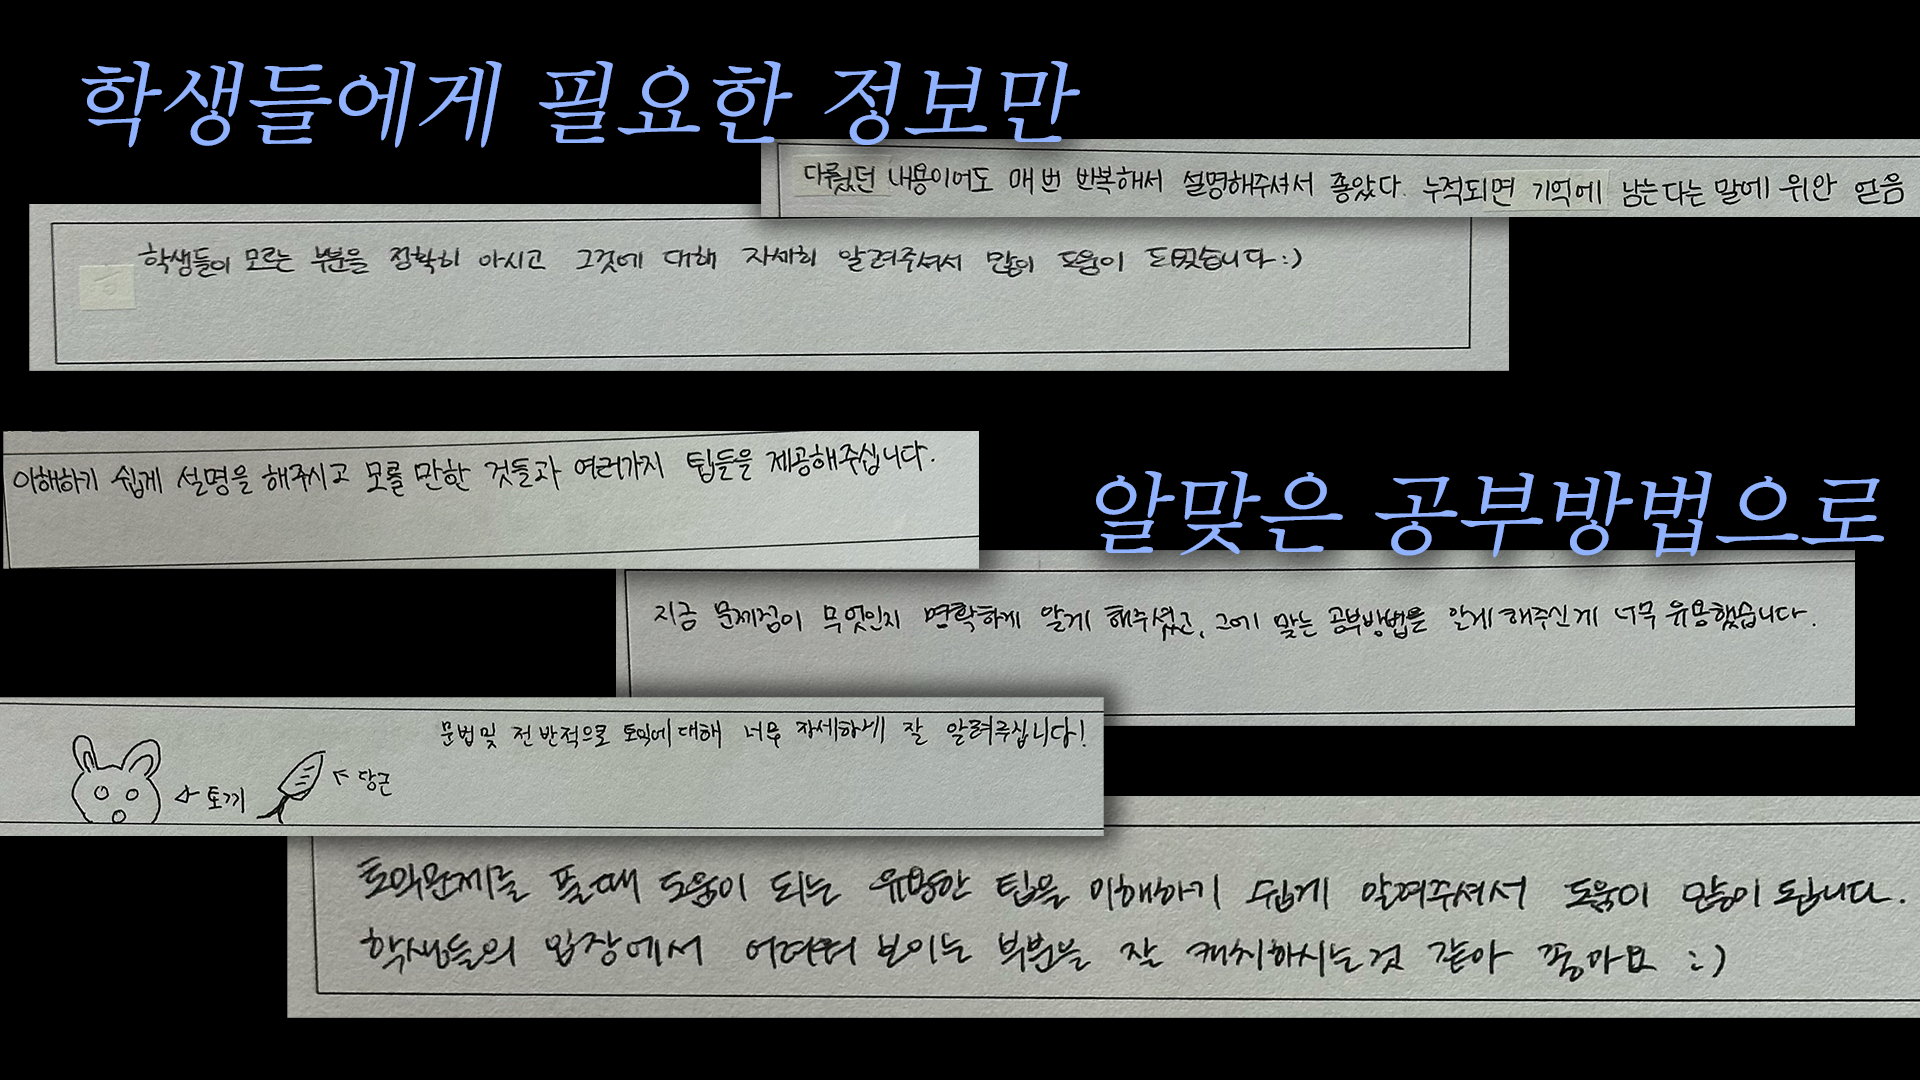 학생들에게 필요한 정보만
다뤘던 내용이어도 매번 반복해서 설명해주셔서 좋았다. 누적되면 기억에 남는다는 말에 위안 얻음
학생들이 모르는 부분을 정확히 아시고 그것에 대해 자세히 알려주셔서 많이 도움이 되었습니다:)
이해하기 쉽게 설명을 해주시고 모를 만한 것들과 여러가지 팁들을 제공해주십니다.
알맞은 공부방법으로
지금 문제점이 무엇인지 명확하게 알게 해주셨고, 그에 맞는 공부방법을 알게해주신게 너무 유용했습니다.
문법및 전반적으로 토익에대해 너무 자세하게 잘 알려주십니다!
토끼
당근
토익문제를 풀때 도움이 되는 유용한 팁을 이해하기 쉽게 알려주셔서 도움이 많이 됩니다.
학생들의 입장에서 어려워 보이는 부분을 잘 캐치하시는것 같아 좋아요 :)